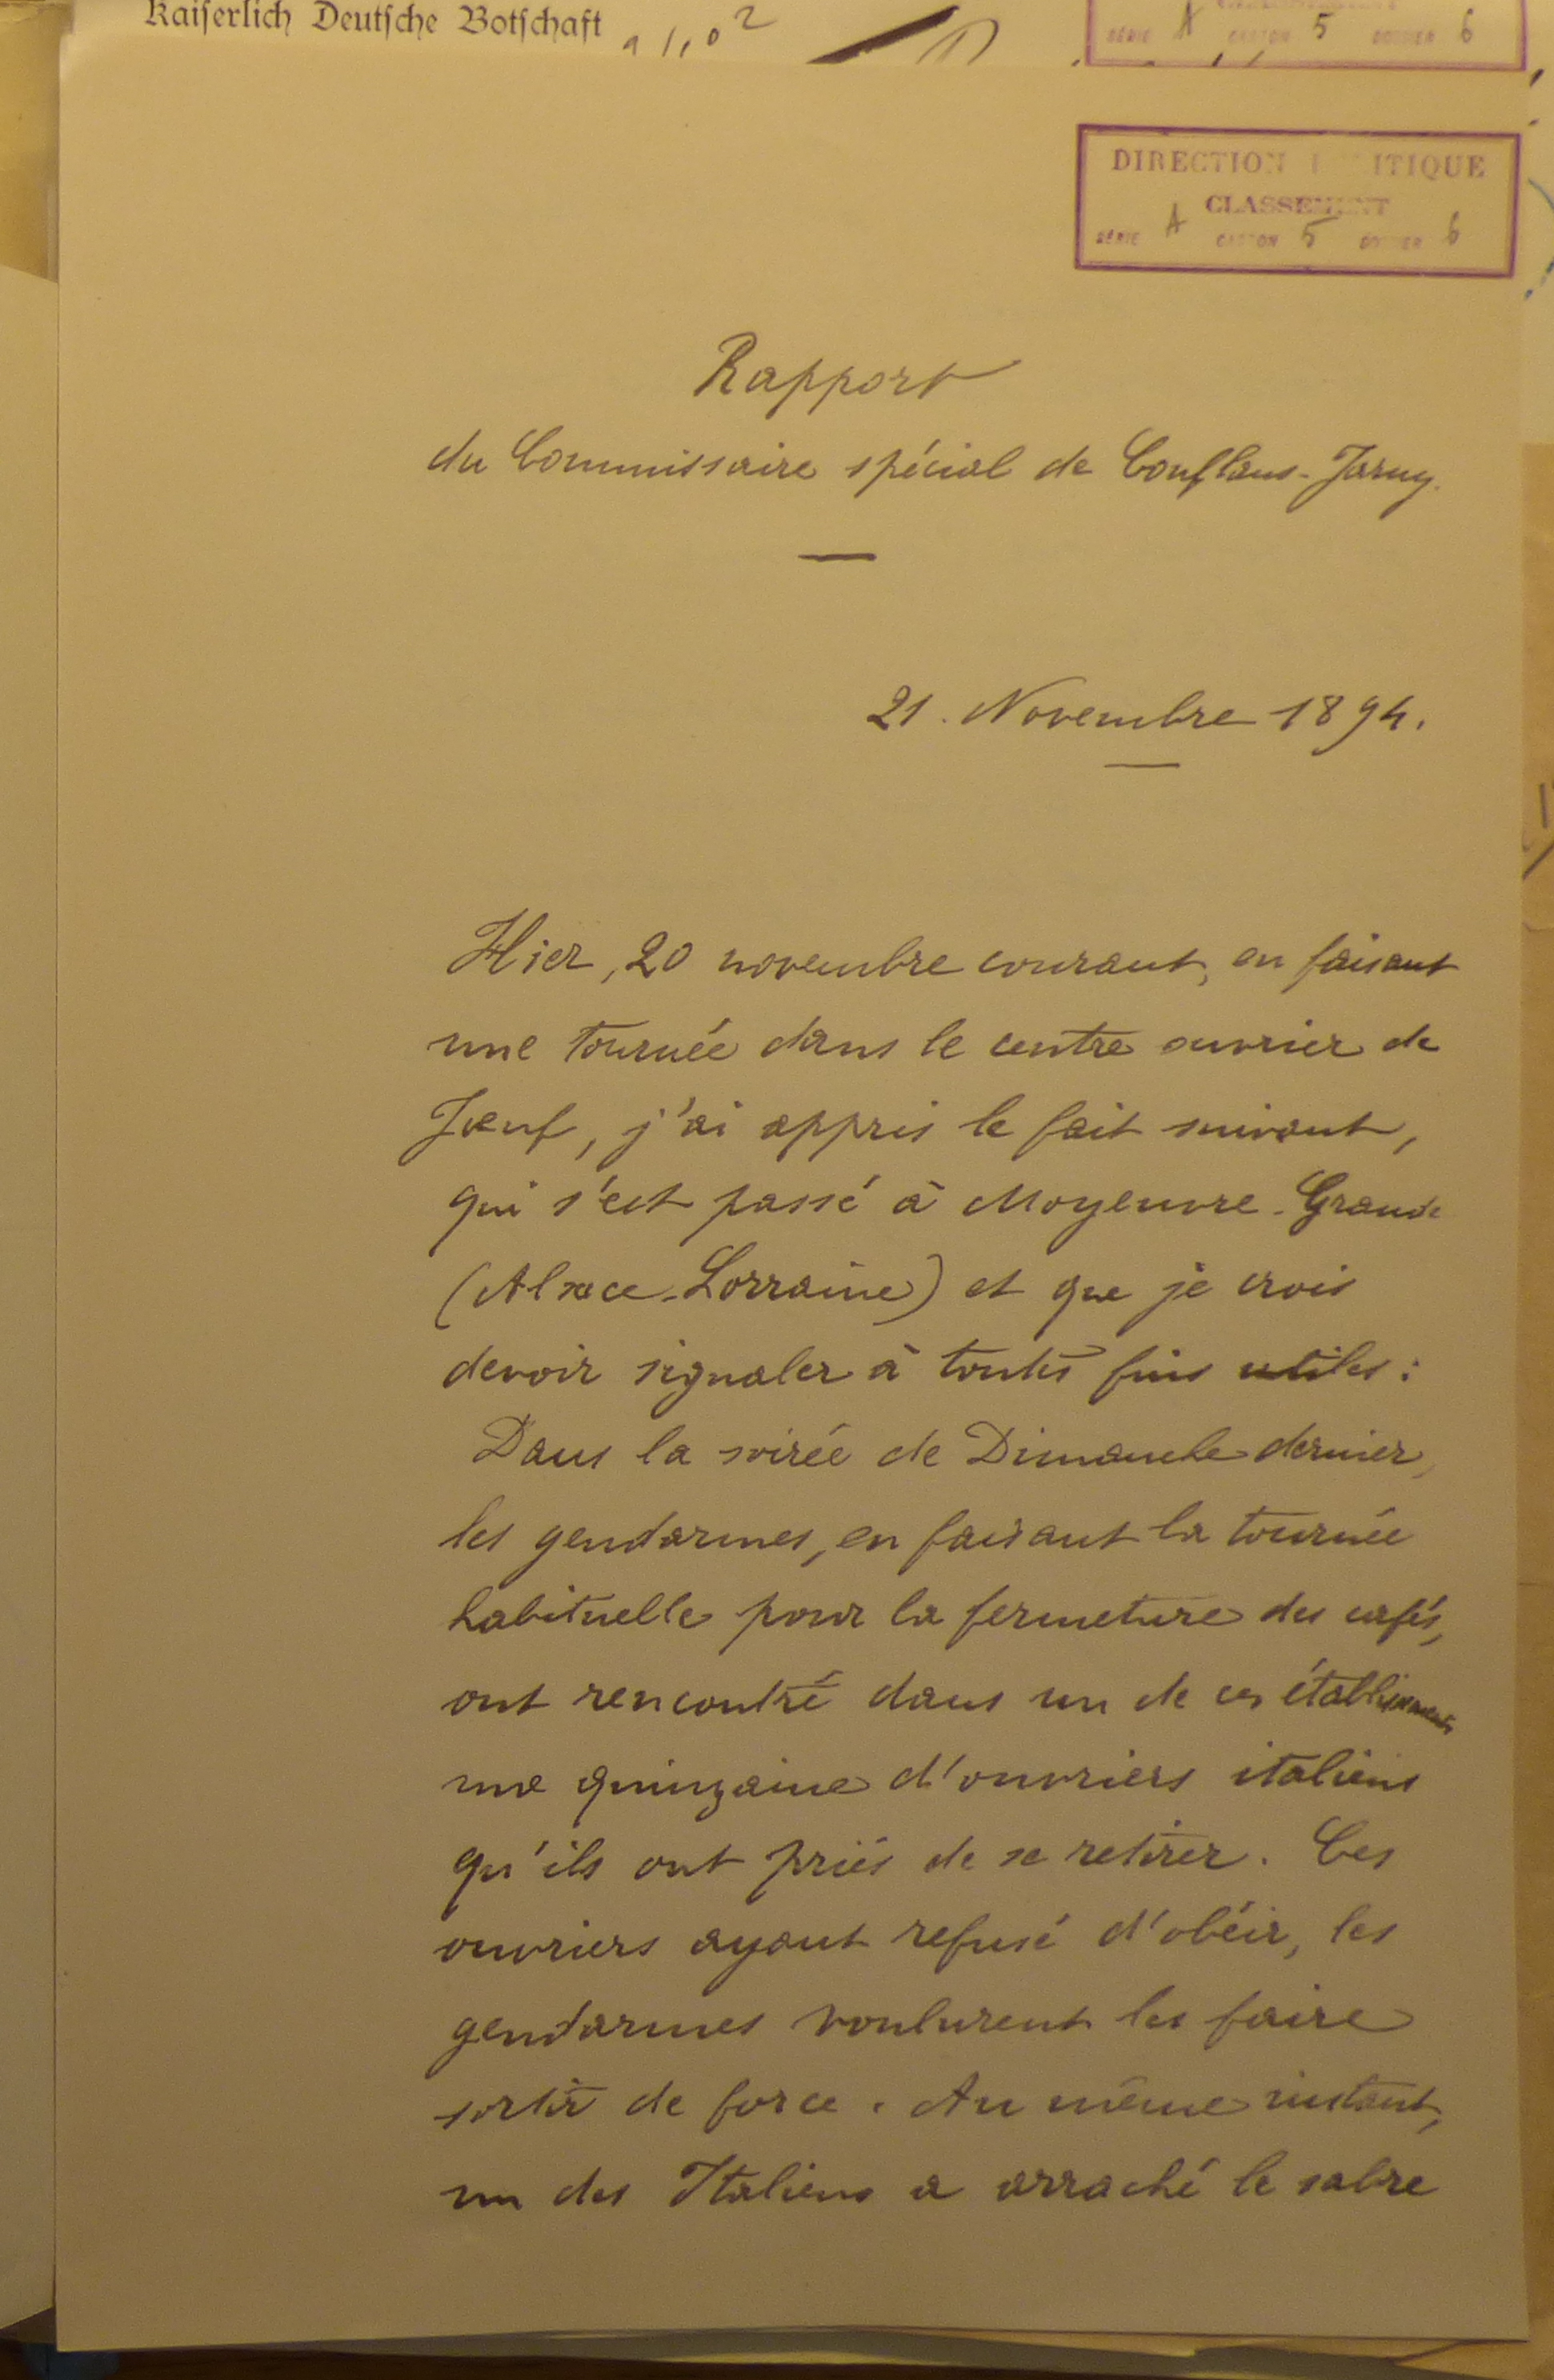 Kaiserlich Deutsche Botschaft
SÉRIE A CARTON 5 DOSSIER 6
DIRECTION POLITIQUE
CLASSEMENT
SÉRIE A CARTON 5 DOSSIER 6
Rapport
du Commissaire spécial de Conflans-Jarny.
21. Novembre 1894.
Hier, 20 novembre courant, en faisant
une tournée dans le centre ouvrier de
Jœuf, j'ai appris le fait suivant,
qui s'est passé à Moyeuvre-Grande
(Alsace-Lorraine) et que je crois
devoir signaler à toutes fins utiles :
Dans la soirée de Dimanche dernier,
les gendarmes, en faisant la tournée
habituelle pour la fermeture des cafés,
ont rencontré dans un de ces établissements
une quinzaine d'ouvriers italiens
qu'ils ont priés de se retirer. Ces
ouvriers ayant refusé d'obéir, les
gendarmes voulurent les faire
sortir de force. Au même instant,
un des Italiens a arraché le sabre